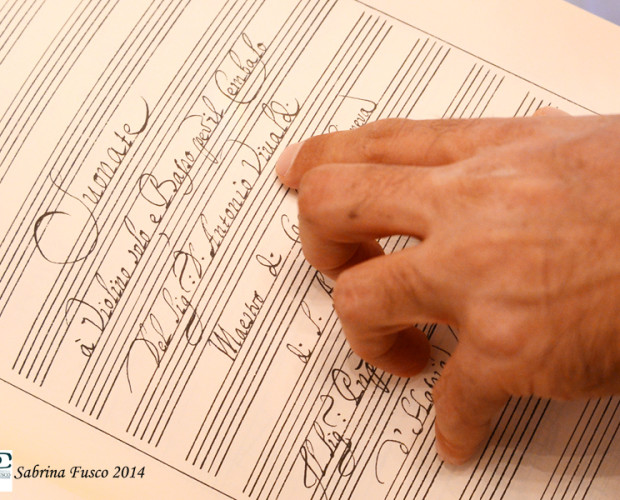 Suonate
à Violino solo e Basso per il Cembalo
Del Sig.r D. Antonio Vivaldi
Maestro di
di S.
Il Sig.r
d'
Sabrina Fusco 2014